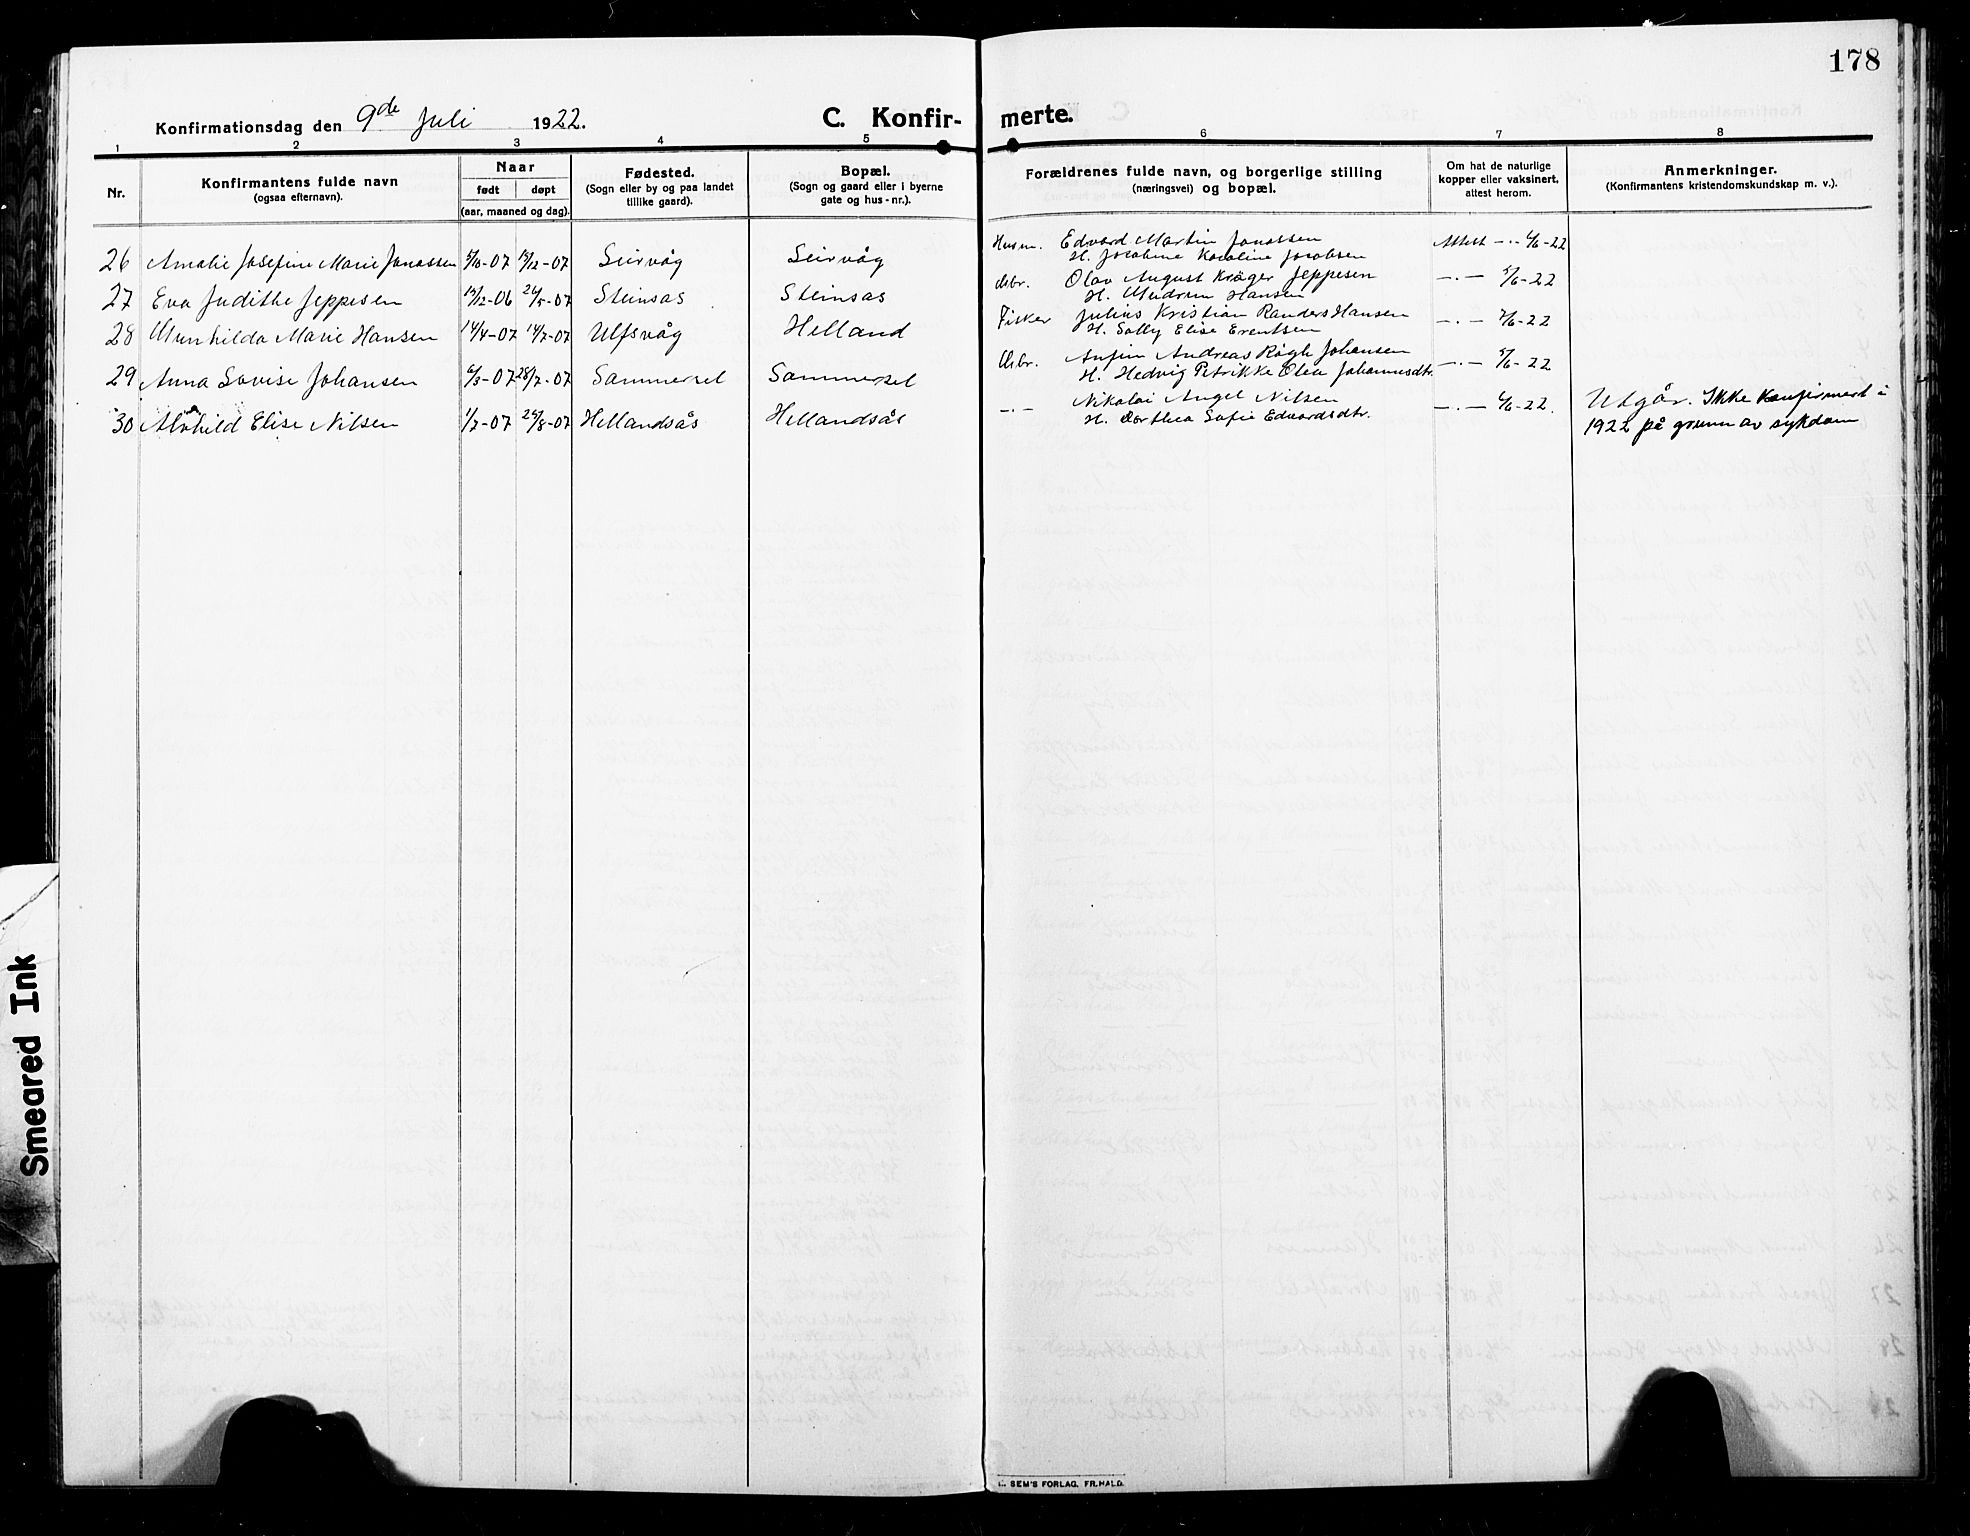 178
Konfirmationsdag den 9de Juli 1922.
C. Konfir- merte.
1 2 3 4 5 6 7 8
Nr.
Konfirmantens fulde navn
(ogsaa efternavn).
Naar
født døpt
(aar, maaned og dag).
Fødested.
(Sogn eller by og paa landet
tillike gaard).
Bopæl.
(Sogn og gaard eller i byerne
gate og hus-nr.).
Forældrenes fulde navn, og borgerlige stilling
(næringsvei) og bopæl.
Om hat de naturlige
kopper eller vaksinert,
attest herom.
Anmerkninger.
(Konfirmantens kristendomskundskap m. v.).
Husm. Edvard Martin Jonassen
26 Amalie Josefine Marie Jonassen 5/10-07 15/12-07 Leirvåg Leirvåg H. Jocobine Karoline Jocobsen Attest -"- 6/6-22
Olav August Krøger Jeppesen
27 Eva Judithe Jeppesen 19/12-06 26/5-07 Steinsås Steinsås H. Gudrun Hansen -"- 5/6-22
Fisker Julius Kristian Randers Hansen
28 Gunhilda Marie Hansen 14/4-07 14/7-07 Ulfsvåg Helland H. Solly Elise Erentsen -"- 7/6-22
Arbr. Anfin Andreas Røgh Johansen
29 Anna Lovise Johansen 6/3-07 28/7-07 Sommersel Sommersel H. Hedvig Petrikke Olea Johannesdtr. -"- 5/6-22
-"- Nikolai Angel Nilsen
30 Alvhild Elise Nilsen 1/7-07 25/8-07 Hellandsås Hellandsås H. Dorthea Sofie Edvardsdtr. -"- 6/6-22. Utgår. Ikke konfirmert i
1922 på grunn av sykdom
Smeared Ink
SEM'S FORLAG, FR.HALD.